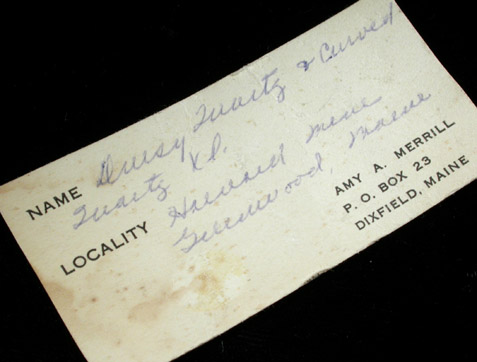 NAME Drusy Quartz & Curved
Quartz Xl.
LOCALITY Harvard Mine
Greenwood, Maine
AMY A. MERRILL
P. O. BOX 23
DIXFIELD, MAINE